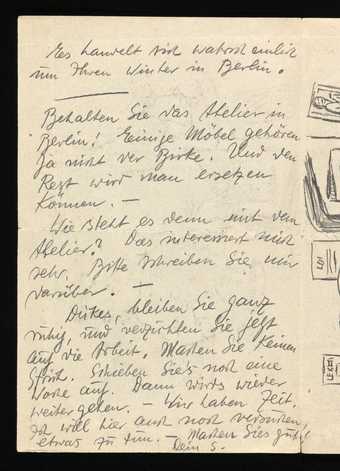 Es handelt sich wahrscheinlich
um Ihren Winter in Berlin.
Behalten Sie das Atelier in
Berlin! Einige Möbel gehören
ja nicht der Birke. Und den
Rest wird man ersetzen
können. —
Wie steht es denn mit dem
Atelier? Das interessiert mich
sehr. Bitte schreiben Sie mir
darüber. —
bleiben Sie ganz
ruhig, und verzichten Sie jetzt
auf die Arbeit. Machen Sie keinen
Strich. Schieben Sie's noch eine
Woche auf. Dann wird's wieder
weiter gehen. — Wir haben Zeit.
Ich will hier auch noch versuchen,
etwas zu tun. — Machen Sie's gut!
Dein S.